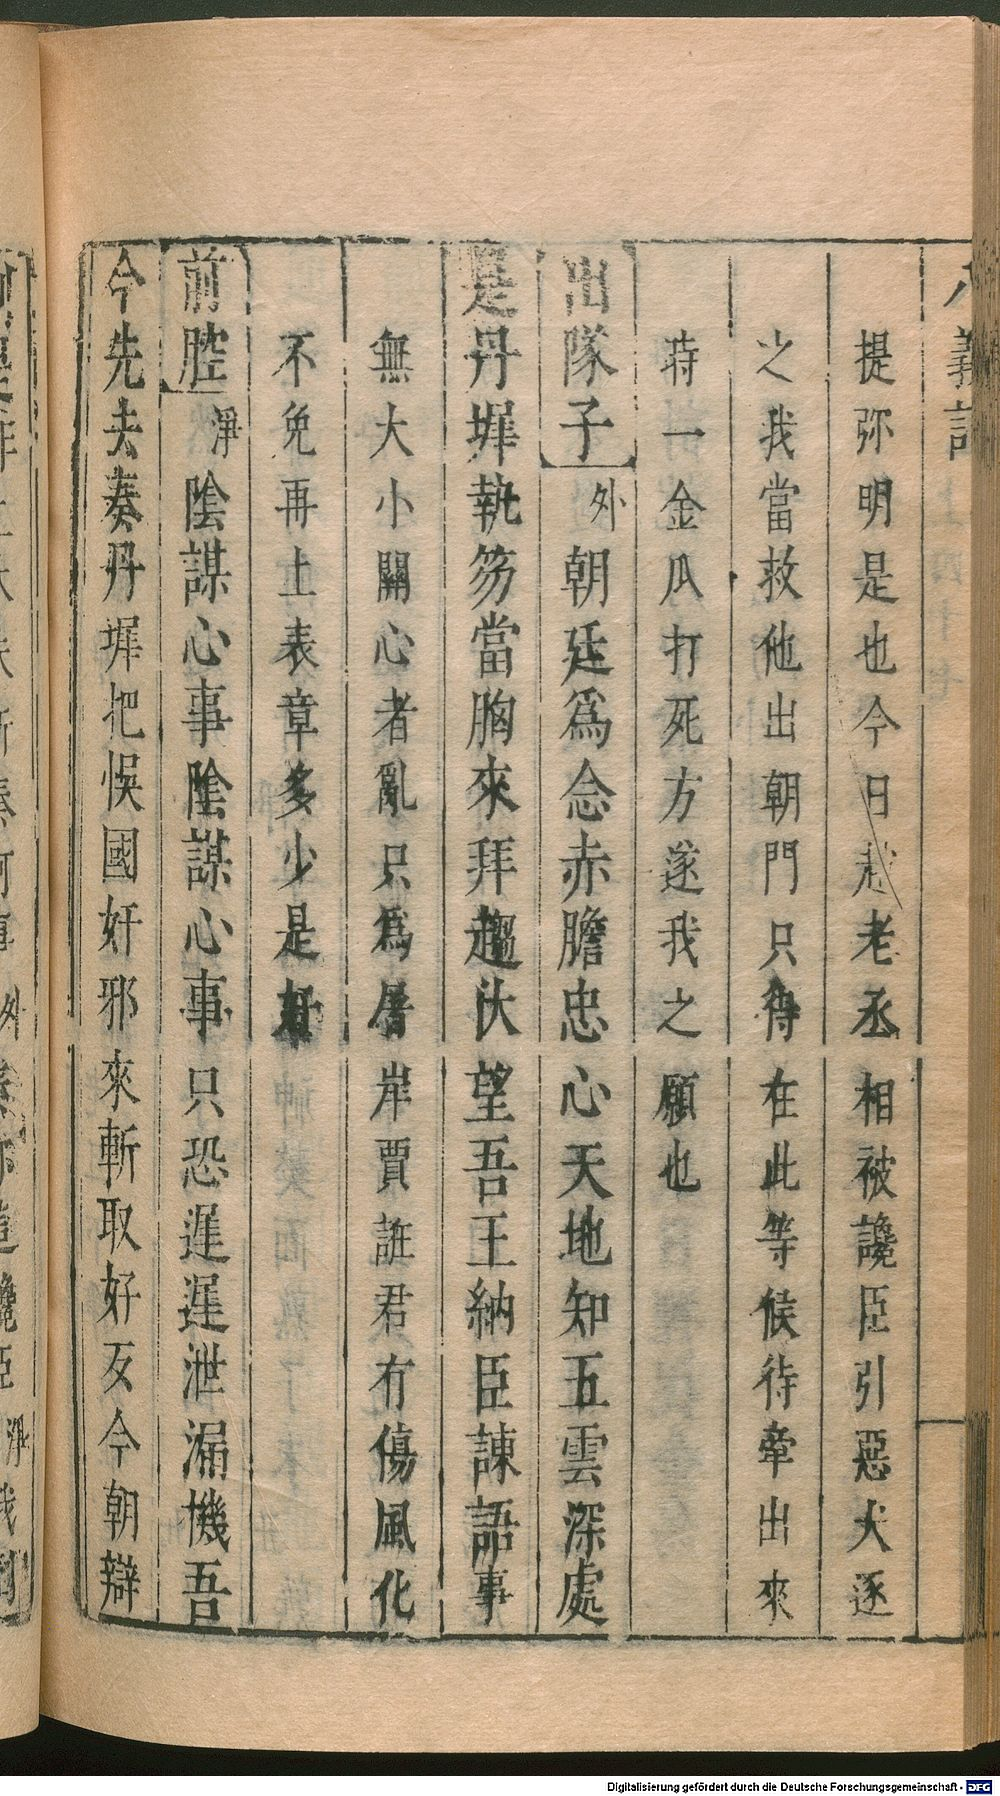 八義記
提弥明是也今日赵老丞相被讒臣引惡犬逐
之我當救他出朝門只得在此等候待牵出來
時一金瓜打死方遂我之願也
出隊子 外 朝廷爲念赤膽忠心天地知五雲深處
是丹墀執笏當胸來拜趨伏望吾王納臣諫語事
無大小關心者亂只爲屠岸賈誑君有傷風化
不免再上表章多少是好
前腔 淨 陰謀心事陰謀心事只恐遲遲泄漏機吾
今先去奏丹墀把悮國奸邪來斬取好歹今朝辯
Digitalisierung gefördert durch die Deutsche Forschungsgemeinschaft - DFG